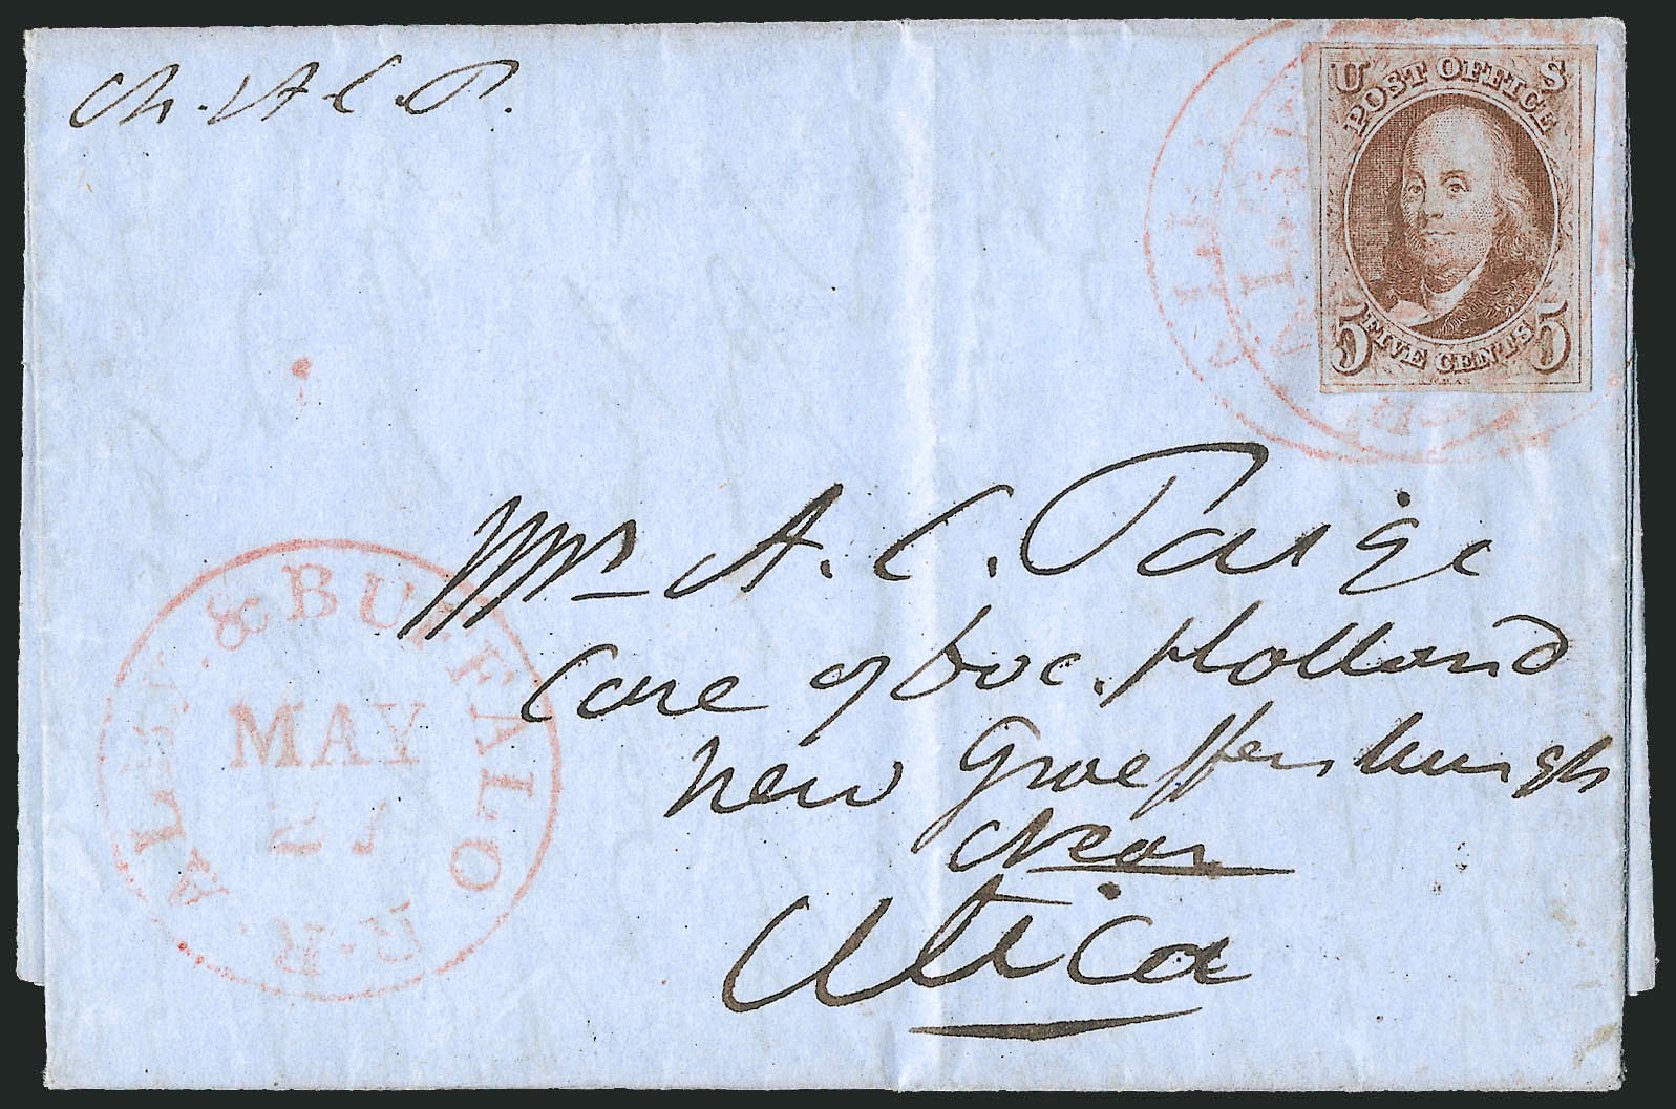 A. C. P.
U S
POST OFFICE
5 FIVE CENTS 5
Mrs A. C. Paige
Care of Doc. Holland
New Graeffenburgh
Near
Utica
ALB'Y. & BUFFALO R.R.
MAY
27